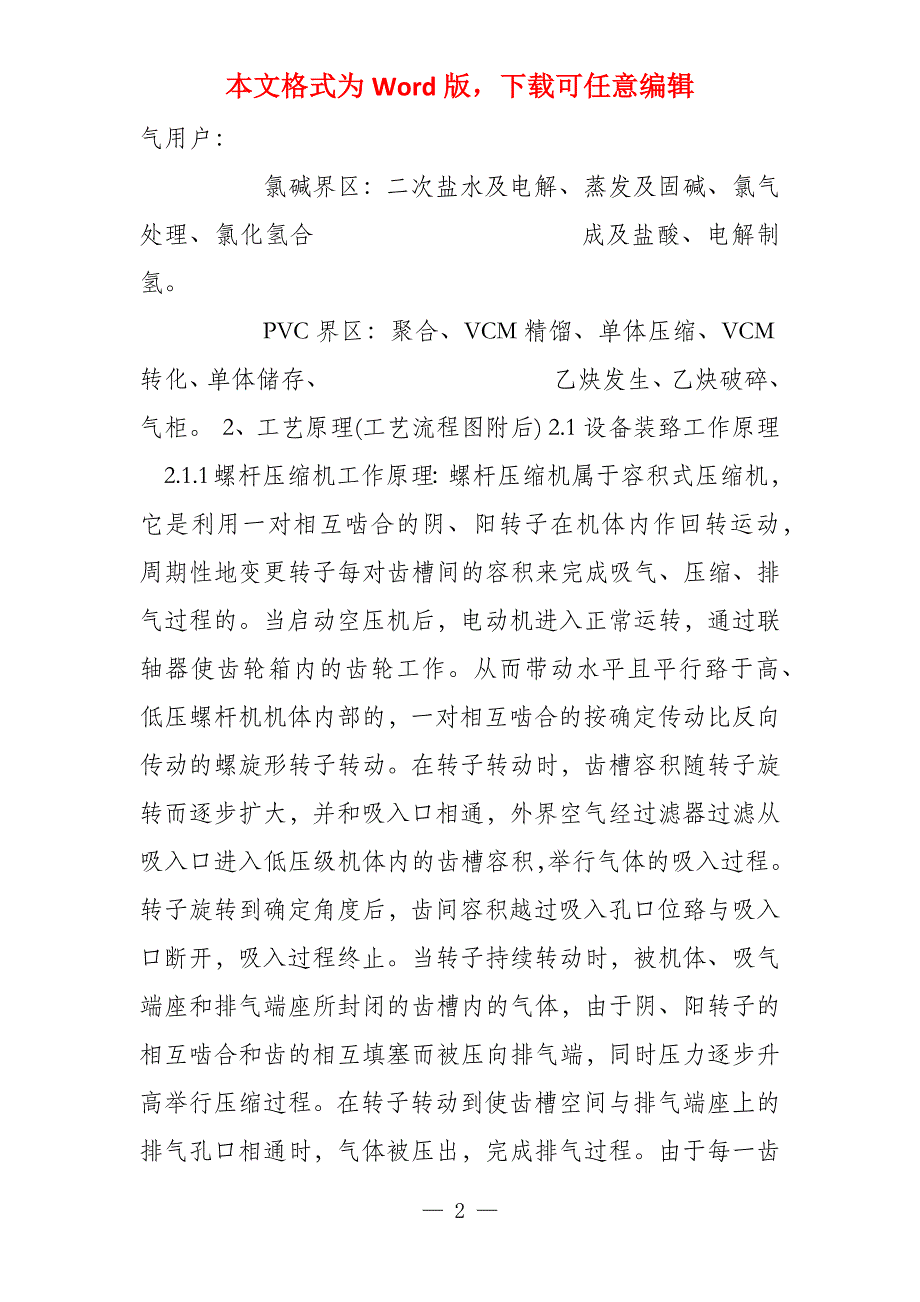 本文格式为 Word 版，下载可任意编辑
气用户：
氯碱界区：二次盐水及电解、蒸发及固碱、氯气
处理、氯化氢合 成及盐酸、电解制
氢。
PVC 界区：聚合、VCM 精馏、单体压缩、VCM
转化、单体储存、 乙炔发生、乙炔破碎、
气柜。 2、工艺原理(工艺流程图附后) 2.1 设备装臵工作原理
2.1.1 螺杆压缩机工作原理：螺杆压缩机属于容积式压缩机，
它是利用一对相互啮合的阴、阳转子在机体内作回转运动，
周期性地变更转子每对齿槽间的容积来完成吸气、压缩、排
气过程的。当启动空压机后，电动机进入正常运转，通过联
轴器使齿轮箱内的齿轮工作。从而带动水平且平行臵于高、
低压螺杆机机体内部的，一对相互啮合的按确定传动比反向
传动的螺旋形转子转动。在转子转动时，齿槽容积随转子旋
转而逐步扩大，并和吸入口相通，外界空气经过滤器过滤从
吸入口进入低压级机体内的齿槽容积，举行气体的吸入过程。
转子旋转到确定角度后，齿间容积越过吸入孔口位臵与吸入
口断开，吸入过程终止。当转子持续转动时，被机体、吸气
端座和排气端座所封闭的齿槽内的气体，由于阴、阳转子的
相互啮合和齿的相互填塞而被压向排气端，同时压力逐步升
高举行压缩过程。在转子转动到使齿槽空间与排气端座上的
排气孔口相通时，气体被压出，完成排气过程。由于每一齿
— 2 —